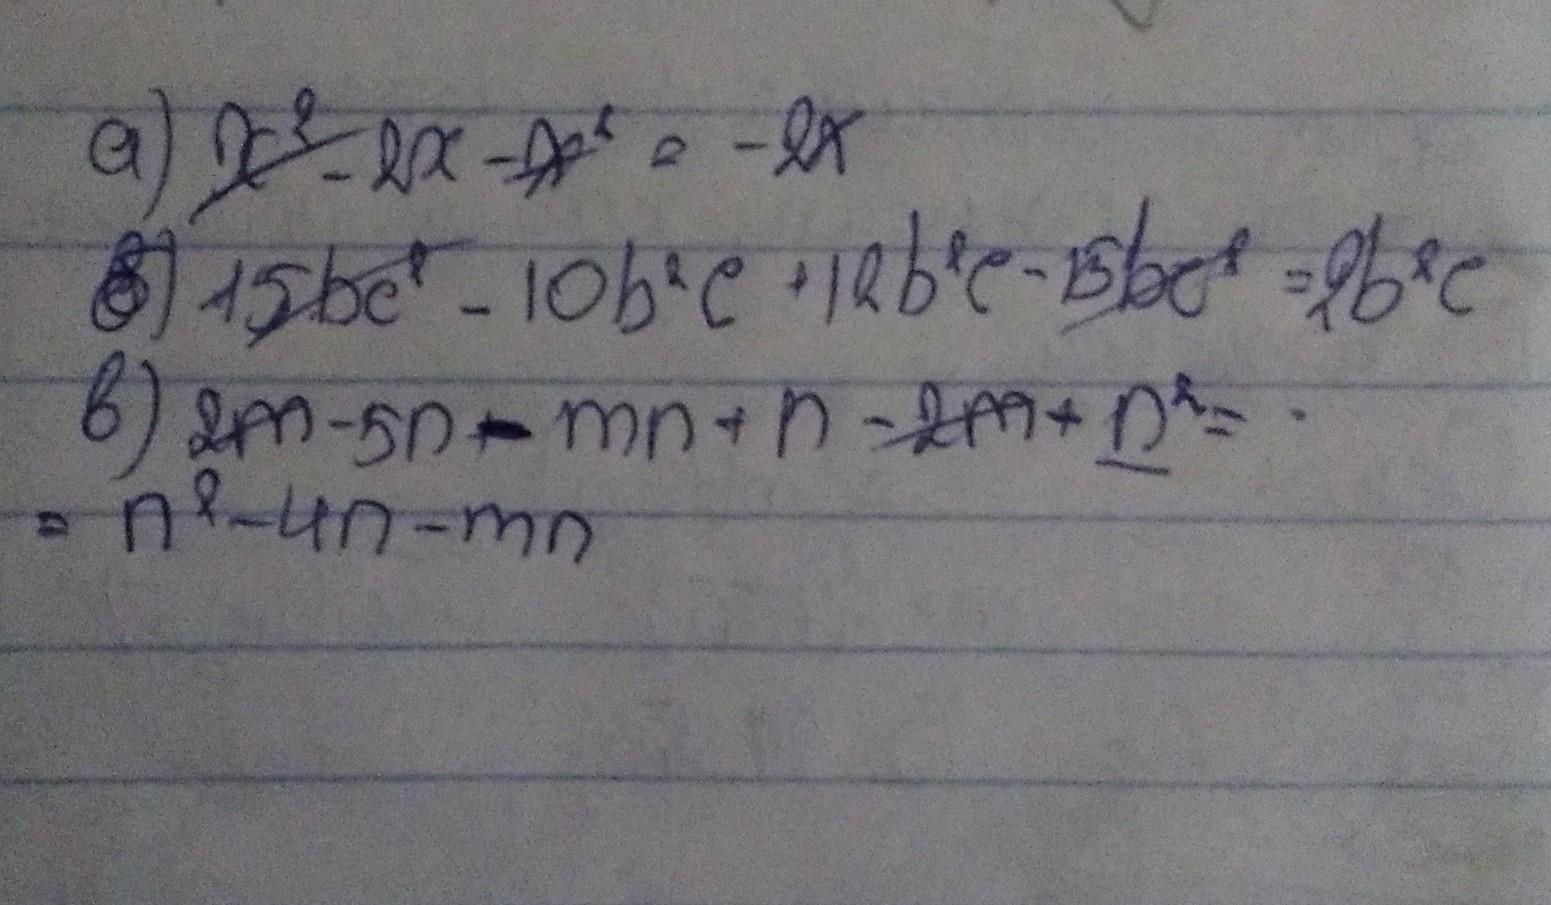 а) x² - 2x - x² = -2x
б) 15bc² - 10b²c + 12b²c - 15bc² = 2b²c
в) 2m - 5n - mn + n - 2m + n² =
= n² - 4n - mn